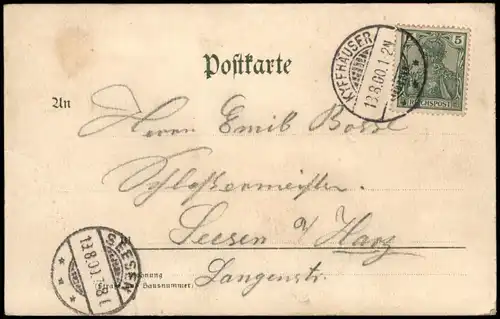 Postkarte
KYFFHÄUSER
13.8.00.1-2N
5
REICHSPOST
An
Herrn Emil Bosse
Schlossermeister
Seesen a/Harz
Langenstr.
SEESEN
Wohnung
(Straße und Hausnummer)